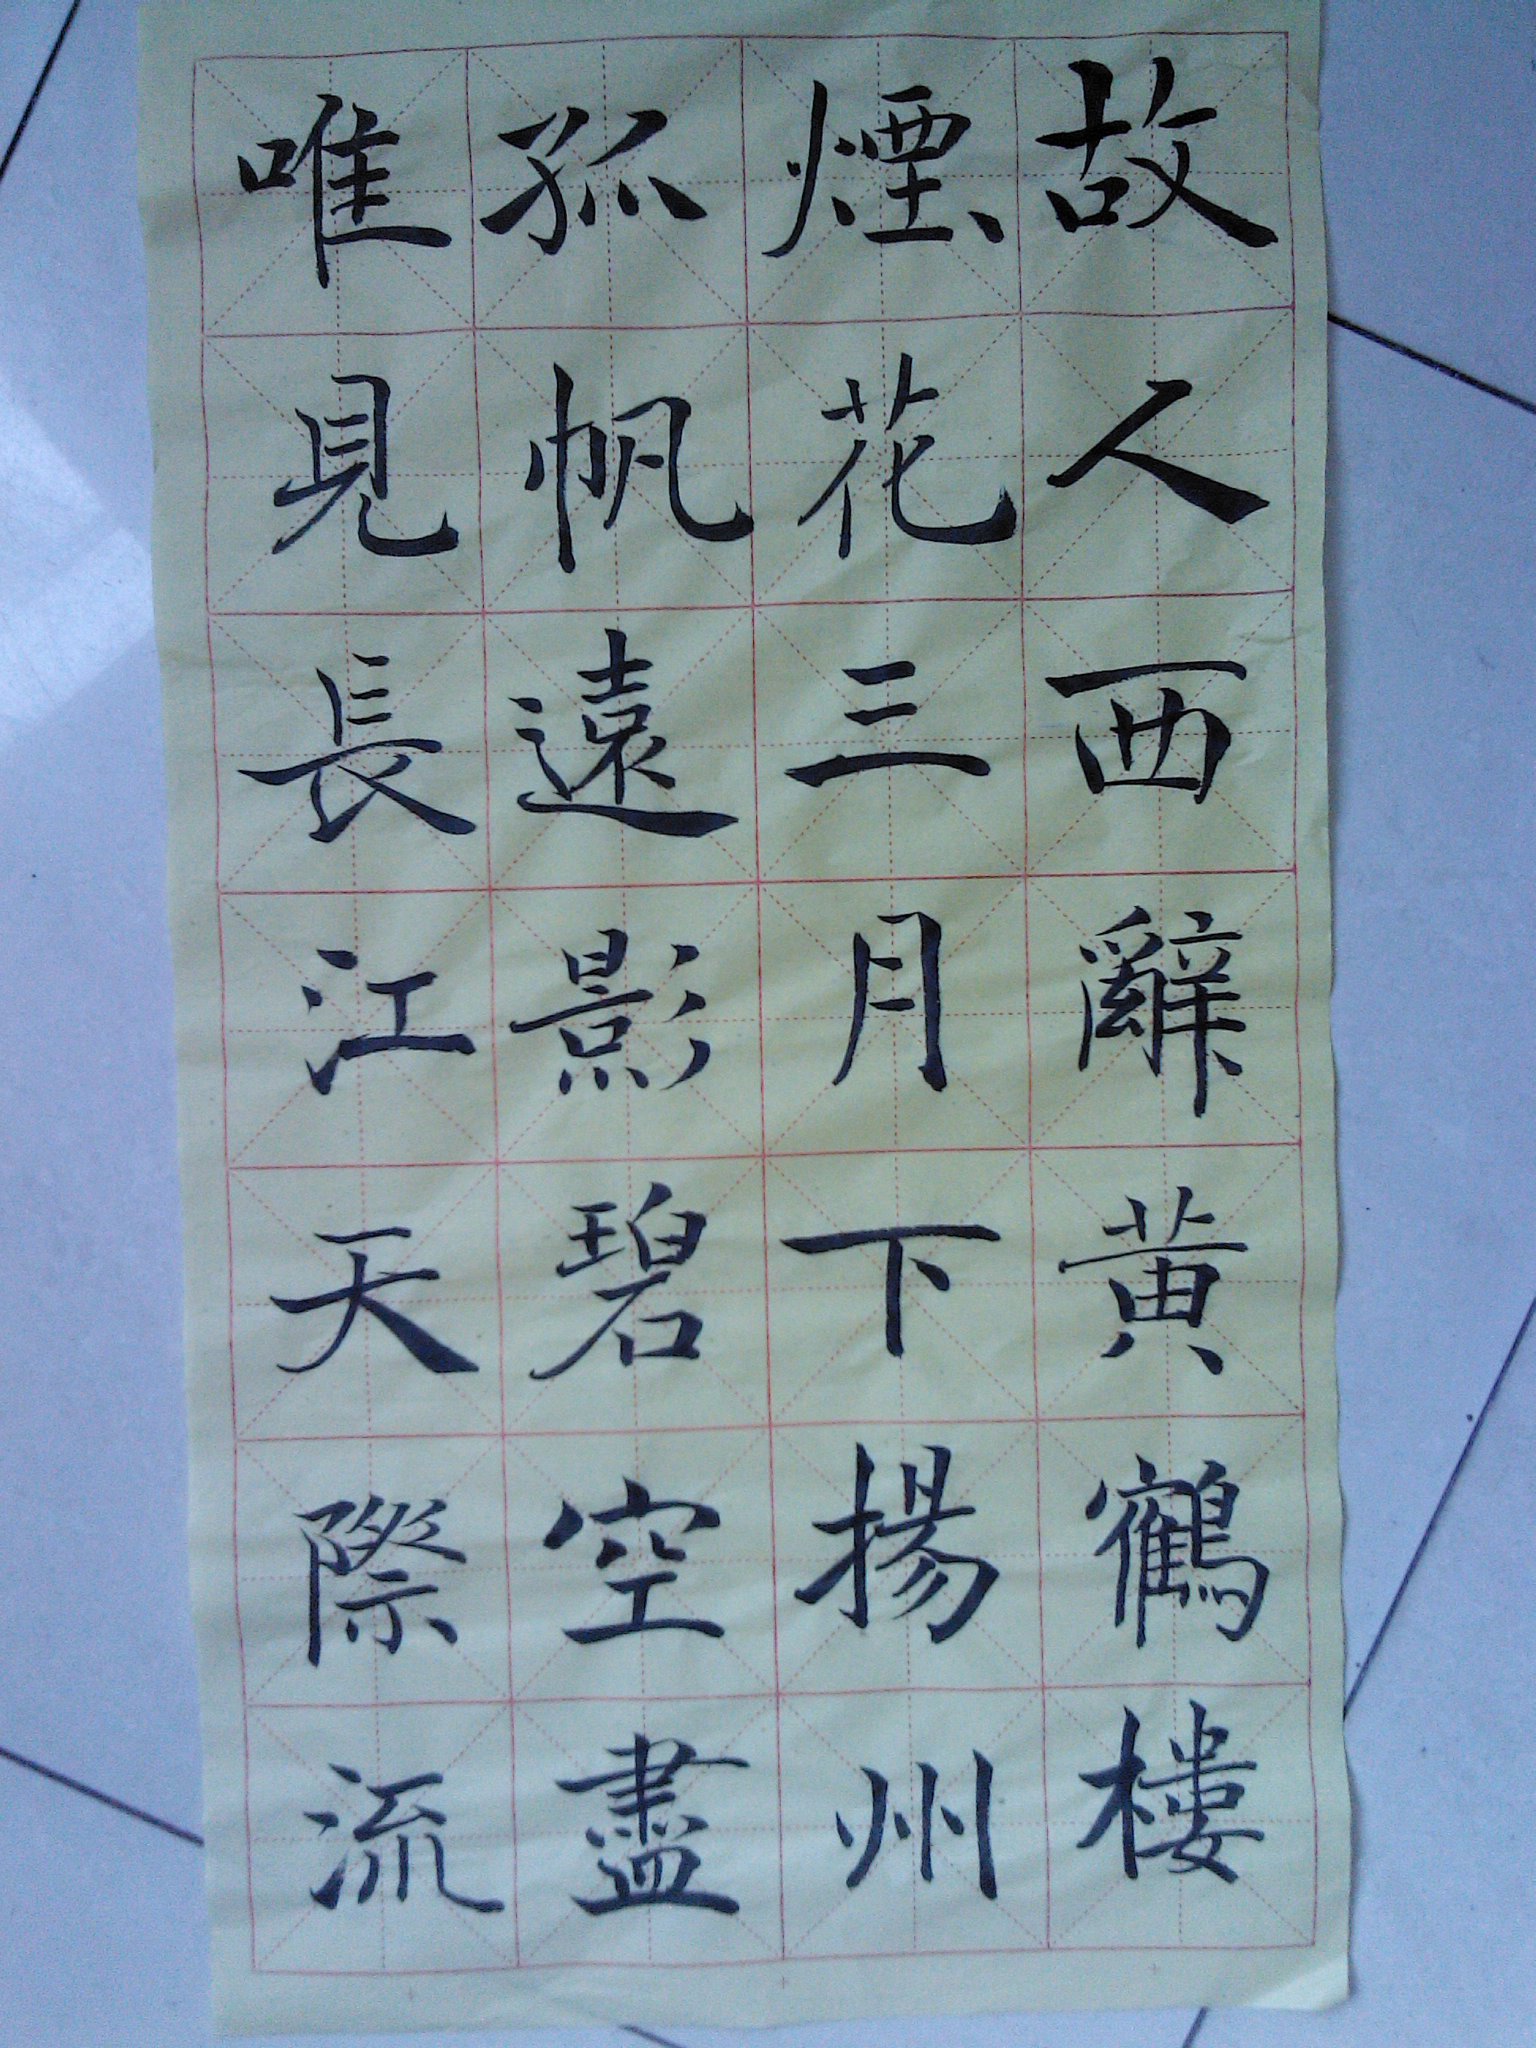 故人西辭黃鶴樓
煙花三月下揚州
孤帆遠影碧空盡
唯見長江天際流